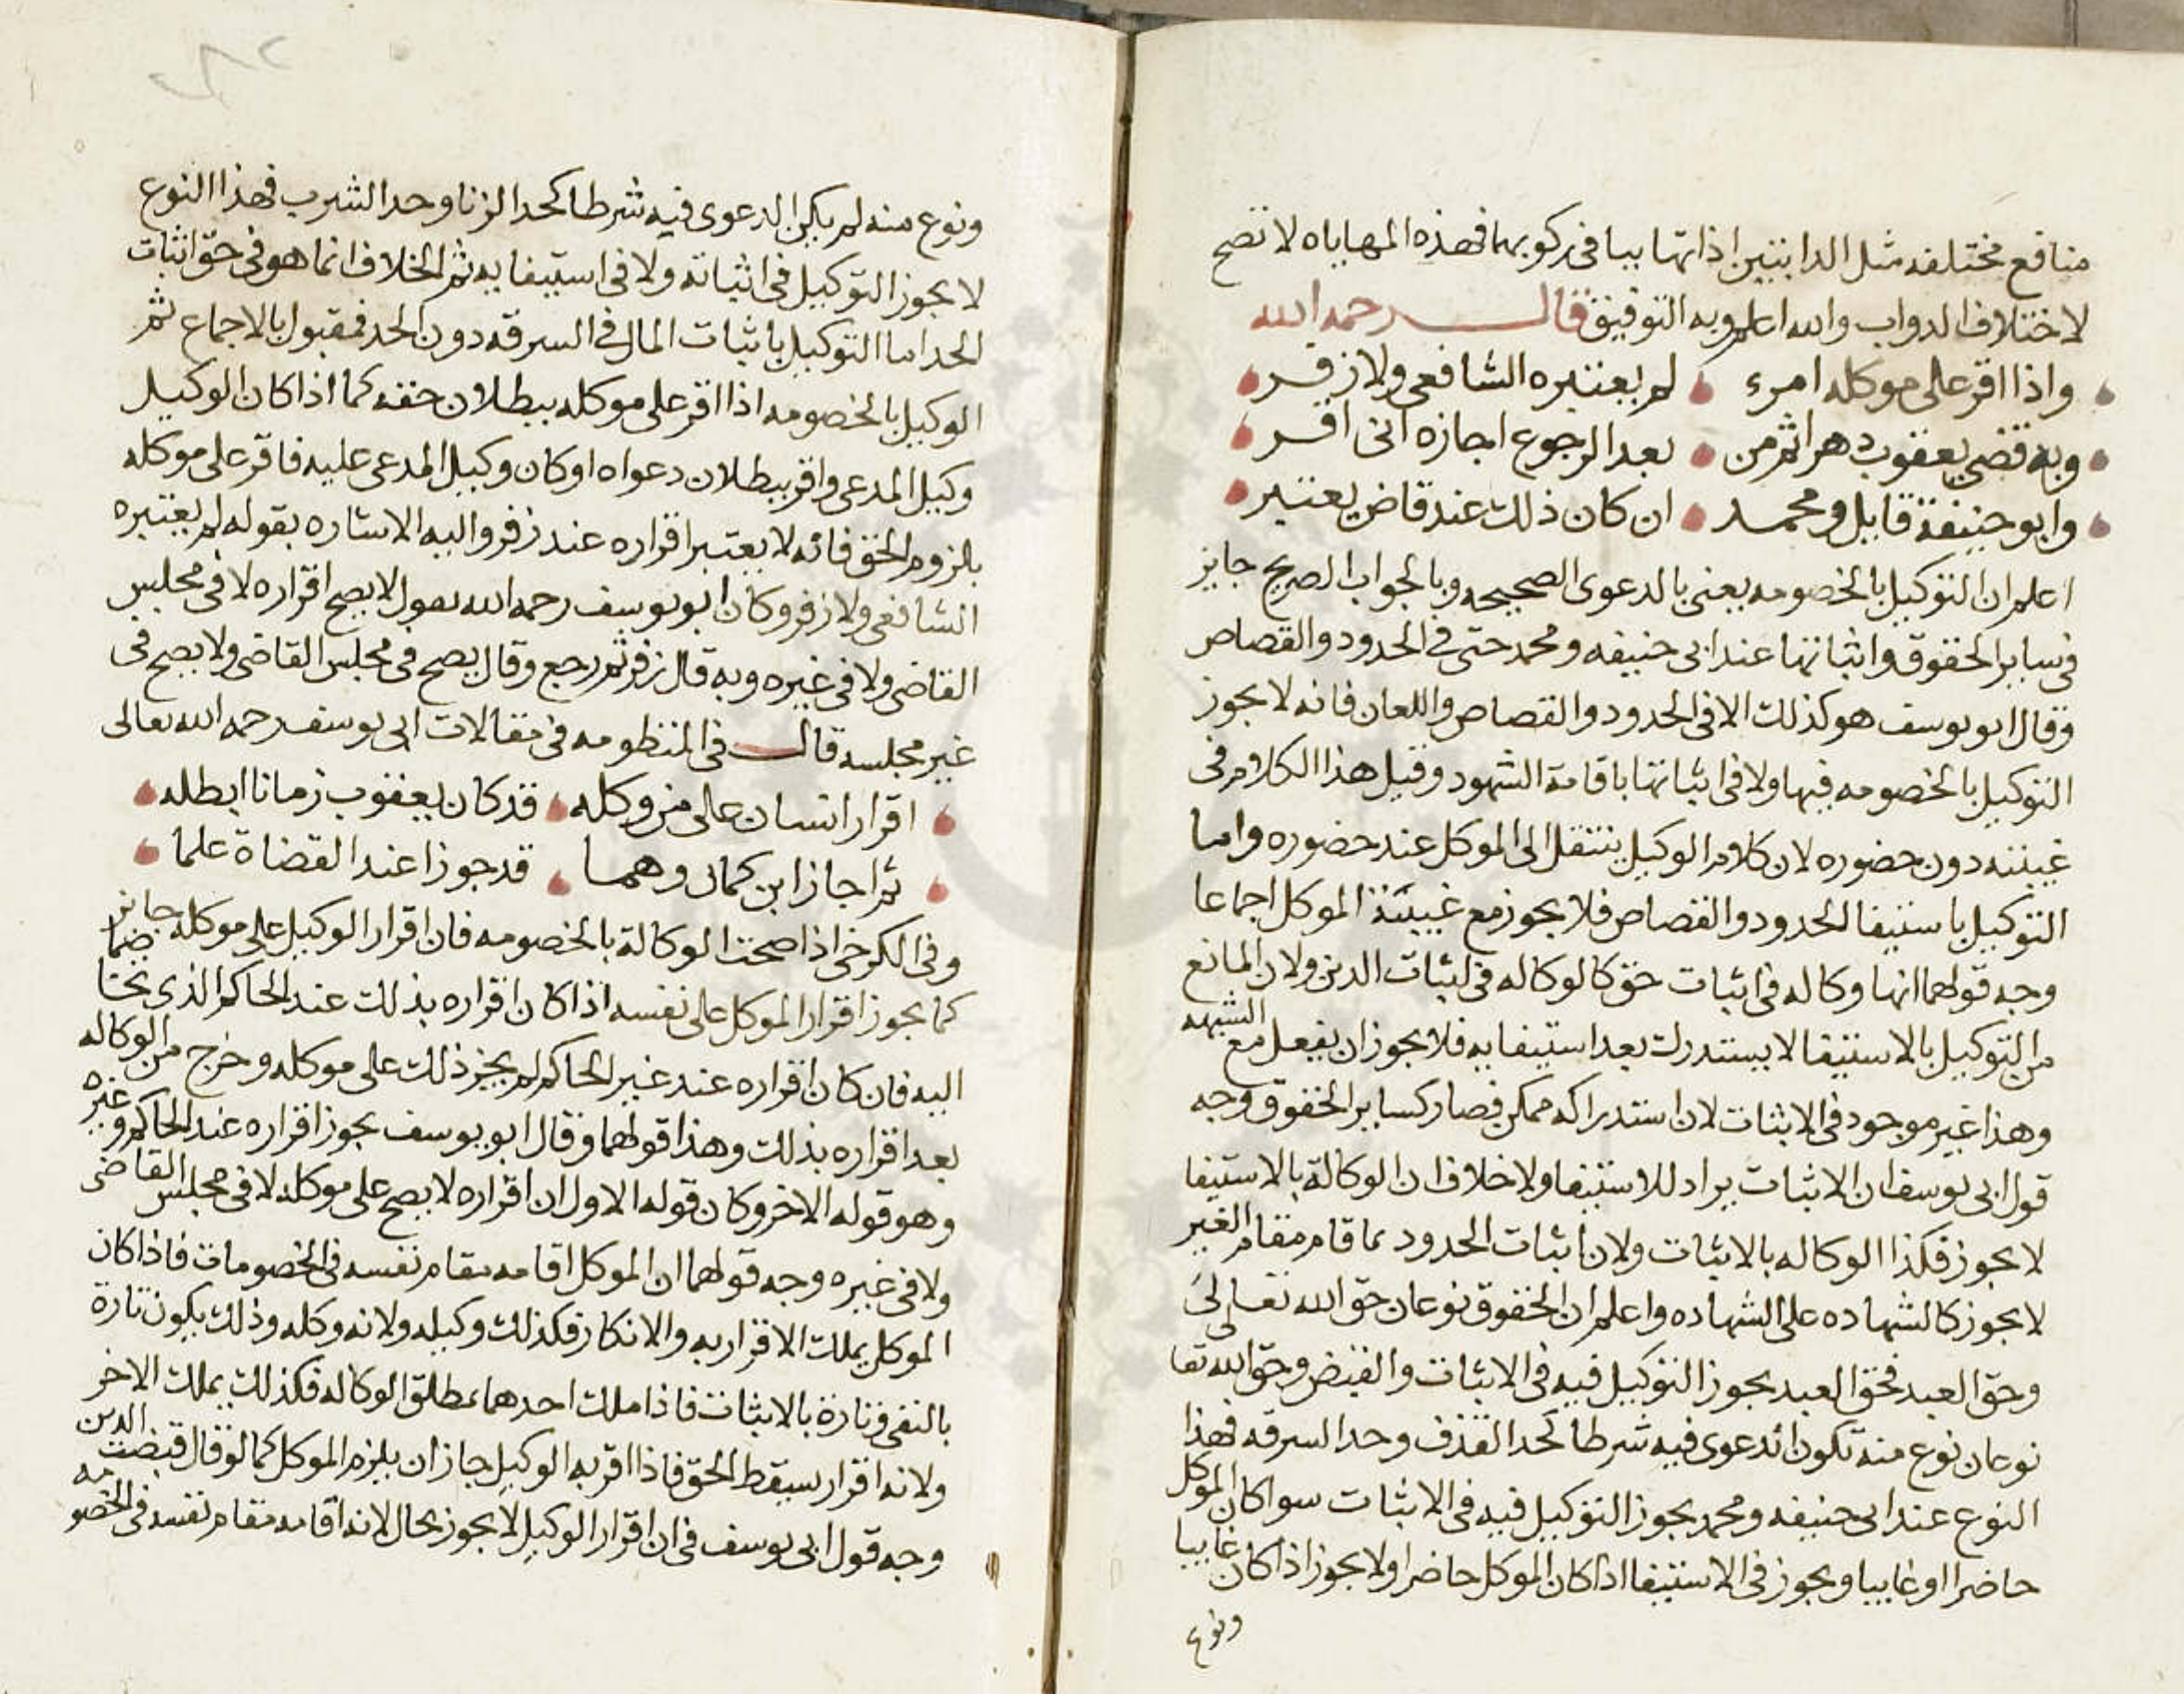 منافع مختلفه مثل الدابتين اذا تهاييا في ركوبهما فهذه المهاياه لا تصح
لاختلاف الدواب والله اعلم وبه التوفيق قال رحمه الله
واذا اقر على موكله امرء لم يعتبره الشافعي ولا زفر
وبه قضى يعقوب دهرا ثم من بعد الرجوع اجازه انى اقر
وابو حنيفة قايل ومحمد ان كان ذلك عند قاض يعتبر
اعلم ان التوكيل بالخصومه يعنى بالدعوى الصحيحه وبالجواب الصريح جايز
في ساير الحقوق واثباتها عند ابى حنيفه ومحمد حتى في الحدود والقصاص
وقال ابو يوسف هو كذلك الا في الحدود والقصاص واللعان فانه لا يجوز
التوكيل بالخصومه فيها ولا في اثباتها باقامة الشهود وقيل هذا الكلام في
غيبته دون حضوره لان كلام الوكيل ينتقل الى الموكل عند حضوره واما
التوكيل باستيفا الحدود والقصاص فلا يجوز مع غيبة الموكل اجماعا
وجه قولهما انها وكاله في اثبات حق كالوكاله في اثبات الدين ولان المانع
من التوكيل بالاستيفا لا يستدرك بعد استيفايه فلا يجوز ان يفعل مع الشبهه
وهذا غير موجود في الاثبات لان استدراكه ممكن فصار كساير الحقوق وجه
قول ابى يوسف ان الاثبات يراد للاستيفا ولا خلاف ان الوكالة بالاستيفا
لا يجوز فكذا الوكاله بالاثبات ولان اثبات الحدود بما قام مقام الغير
لا يجوز كالشهاده على الشهاده واعلم ان الحقوق نوعان حق الله تعالى
وحق العبد فحق العبد يجوز التوكيل فيه في الاثبات والقبض وحق الله تعا
نوعان نوع منه تكون الدعوى فيه شرطا كحد القذف وحد السرقه فهذا
النوع عند ابى حنيفه ومحمد يجوز التوكيل فيه في الاثبات سوا كان الموكل
حاضرا او غايبا ويجوز في الاستيفا اذا كان الموكل حاضرا ولا يجوز اذا كان غايبا
ونوع
ونوع منه لم يكن الدعوى فيه شرطا كحد الزنا وحد الشرب فهذا النوع
لا يجوز التوكيل في اثباته ولا في استيفايه ثم الخلاف انما هو في حق اثبات
الحد اما التوكيل باثبات المال في السرقه دون الحد فمقبول بالاجماع ثم
الوكيل بالخصومه اذا اقر على موكله ببطلان حقه كما اذا كان الوكيل
وكيل المدعى واقر ببطلان دعواه او كان وكيل المدعى عليه فاقر على موكله
بلزوم الحق فانه لا يعتبر اقراره عند زفر واليه الاشاره بقوله لم يعتبره
الشافعي ولا زفر وكان ابو يوسف رحمه الله يقول لا يصح اقراره لا في مجلس
القاضى ولا في غيره وبه قال زفر ثم رجع وقال يصح في مجلس القاضى ولا يصح في
غير مجلسه قال في المنظومه في مقالات ابى يوسف رحمه الله تعالى
اقرار انسان على من وكله قد كان يعقوب زمانا ابطله
ثم اجاز ابن كمال وهما قد جوزا عند القضاة علما
وفى الكرخى اذا صحت الوكالة بالخصومه فان اقرار الوكيل على موكله جايز
كما يجوز اقرار الموكل على نفسه اذا كان اقراره بذلك عند الحاكم الذى يختا
اليه فان كان اقراره عند غير الحاكم لم يجز ذلك على موكله وخرج من الوكاله
بعد اقراره بذلك وهذا قولهما وقال ابو يوسف يجوز اقراره عند الحاكم وغيره
وهو قوله الاخر وكان قوله الاول ان اقراره لا يصح على موكله لا في مجلس القاضى
ولا في غيره وجه قولهما ان الموكل اقامه مقام نفسه في الخصومات فاذا كان
الموكل يملك الاقرار به والانكار فكذلك وكيله ولانه وكله وذلك يكون تارة
بالنفى وتارة بالاثبات فاذا ملك احدهما بمطلق الوكاله فكذلك يملك الاخر
ولانه اقرار سيقط الحق فاذا اقر به الوكيل جاز ان يلزم الموكل كما لو قال قبضت الدين
وجه قول ابى يوسف في ان اقرار الوكيل لا يجوز بحال لانه اقامه مقام نفسه في الخصومه